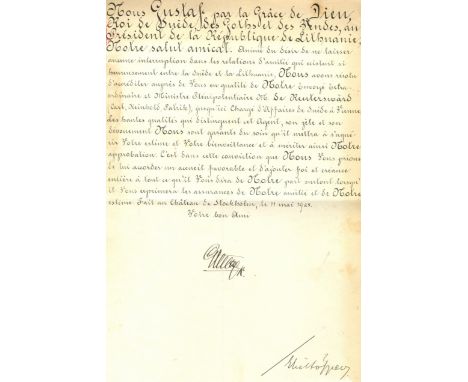 Nous Gustaf, par la Grâce de Dieu,
Roi de Suède, des Goths et des Vendes, au
Président de la République de Lithuanie,
Notre salut amical. Animé du désir de ne laisser
aucune interruption dans les relations d'amitié qui existent si
heureusement entre la Suède et la Lithuanie, Nous avons résolu
d'accréditer auprès de Vous en qualité de Notre Envoyé Extra-
ordinaire et Ministre Plénipotentiaire M. de Reuterswärd
(Carl, Reinhold Patrik), jusqu'ici Chargé d'Affaires de Suède à Vienne.
Les hautes qualités qui distinguent cet Agent, son zèle et son
dévouement Nous sont garants du soin qu'il mettra à s'acqué-
rir Votre estime et Votre bienveillance et à mériter ainsi Notre
approbation. C'est dans cette conviction que Nous Vous prions
de lui accorder un accueil favorable et d'ajouter foi et créance
entière à tout ce qu'il Vous dira de Notre part surtout lorsqu'
il Vous exprimera les assurances de Notre amitié et de Notre
estime. Fait au Château de Stockholm, le 11 mai
Votre bon Ami